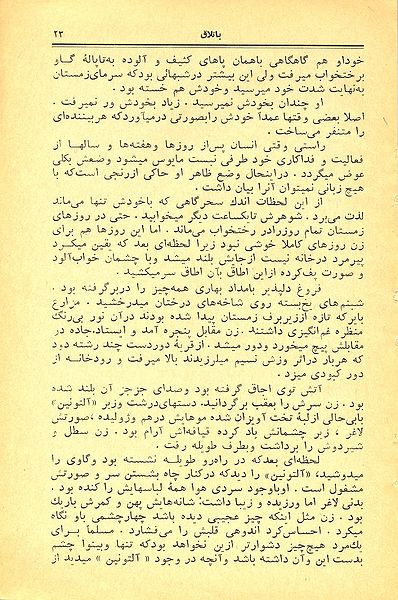 باتلاق ۲۳
خوداو هم گاهگاهی باهمان پاهای کثیف و آلوده به‌تاپالهٔ گاو
برختخواب میرفت ولی این بیشتر درشبهائی بودکه سرمای‌زمستان
به‌نهایت شدت خود میرسید وخودش هم خسته بود .
او چندان بخودش نمیرسید . زیاد بخودش ور نمیرفت .
اصلا بعضی وقتها عمداً خودش رابصورتی درمیآوردکه هربیننده‌ای
را متنفر می‌ساخت .
راستی وقتی انسان پس‌از روزها وهفته‌ها و سالها از
فعالیت و فداکاری خود طرفی نبست مایوس میشود وضعش بکلی
عوض میگردد . دراینحال وضع ظاهر او حاکی ازرنجی است‌که با
هیچ زبانی نمیتوان آنرا بیان داشت .
از این لحظات اندك سحرگاهی که باخودش تنها می‌ماند
لذت می‌برد . شوهرش تایکساعت دیگر میخوابید . حتی در روزهای
زمستان تمام روزرادر رختخواب می‌ماند . اما این روزها هم برای
زن روزهای کاملا خوشی نبود زیرا لحظه‌ای بعد که یقین میکرد
پیرمرد درخانه نیست ازجایش بلند میشد وبا چشمان خواب‌آلود
و صورت پف‌کرده ازاین اطاق بآن اطاق سرمیکشید .
فروغ دلپذیر بامداد بهاری همه‌چیز را دربرگرفته بود .
شبنم‌های یخ‌بسته روی شاخه‌های درختان میدرخشید . مزارع
بایرکه تازه اززیربرف زمستان پیدا شده بودند درآن نور بی‌رنگ
منظره غم‌انگیزی داشتند. زن مقابل پنجره آمد و ایستاد.جاده در
مقابلش پیچ میخورد ودور میشد . ازقریهٔ دوردست چند رشته دود
که هربار دراثر وزش نسیم میلرزیدند بالا میرفت و رودخانه از
دور کبودی میزد .
آتش توی اجاق گرفته بود وصدای جزجز آن بلند شده
بود . زن سرش را بعقب برگردانید. دستهای‌درشت وزبر «آلتونین»
بابی‌حالی ازلبهٔ تخت آویزان شده موهایش درهم وژولیده ،صورتش
لاغر ، زیر چشمانش باد کرده قیافه‌اش آرام بود . زن سطل و
شیردوش را برداشت وبطرف طویله رفت .
لحظه‌ای بعدکه در راه‌رو طویله نشسته بود وگاوی را
میدوشید، «آلتونین» را دیدکه درکنار چاه بشستن سر و صورتش
مشغول است . اوباوجود سردی هوا همهٔ لباسهایش را کنده بود .
بدنی لاغر اما ورزیده و زیبا داشت: شانه‌هایش پهن و کمرش باریك
بود . زن مثل اینکه چیز عجیبی دیده باشد چهارچشمی باو نگاه
میکرد . احساس‌کرد اندوهی قلبش را می‌فشارد . مسلماً برای
یك‌مرد هیچ‌چیز دشوارتر ازین نخواهد بودکه تنها وبینوا چشم
بدست این وآن داشته باشد وآنچه در وجود « آلتونین » میدید از